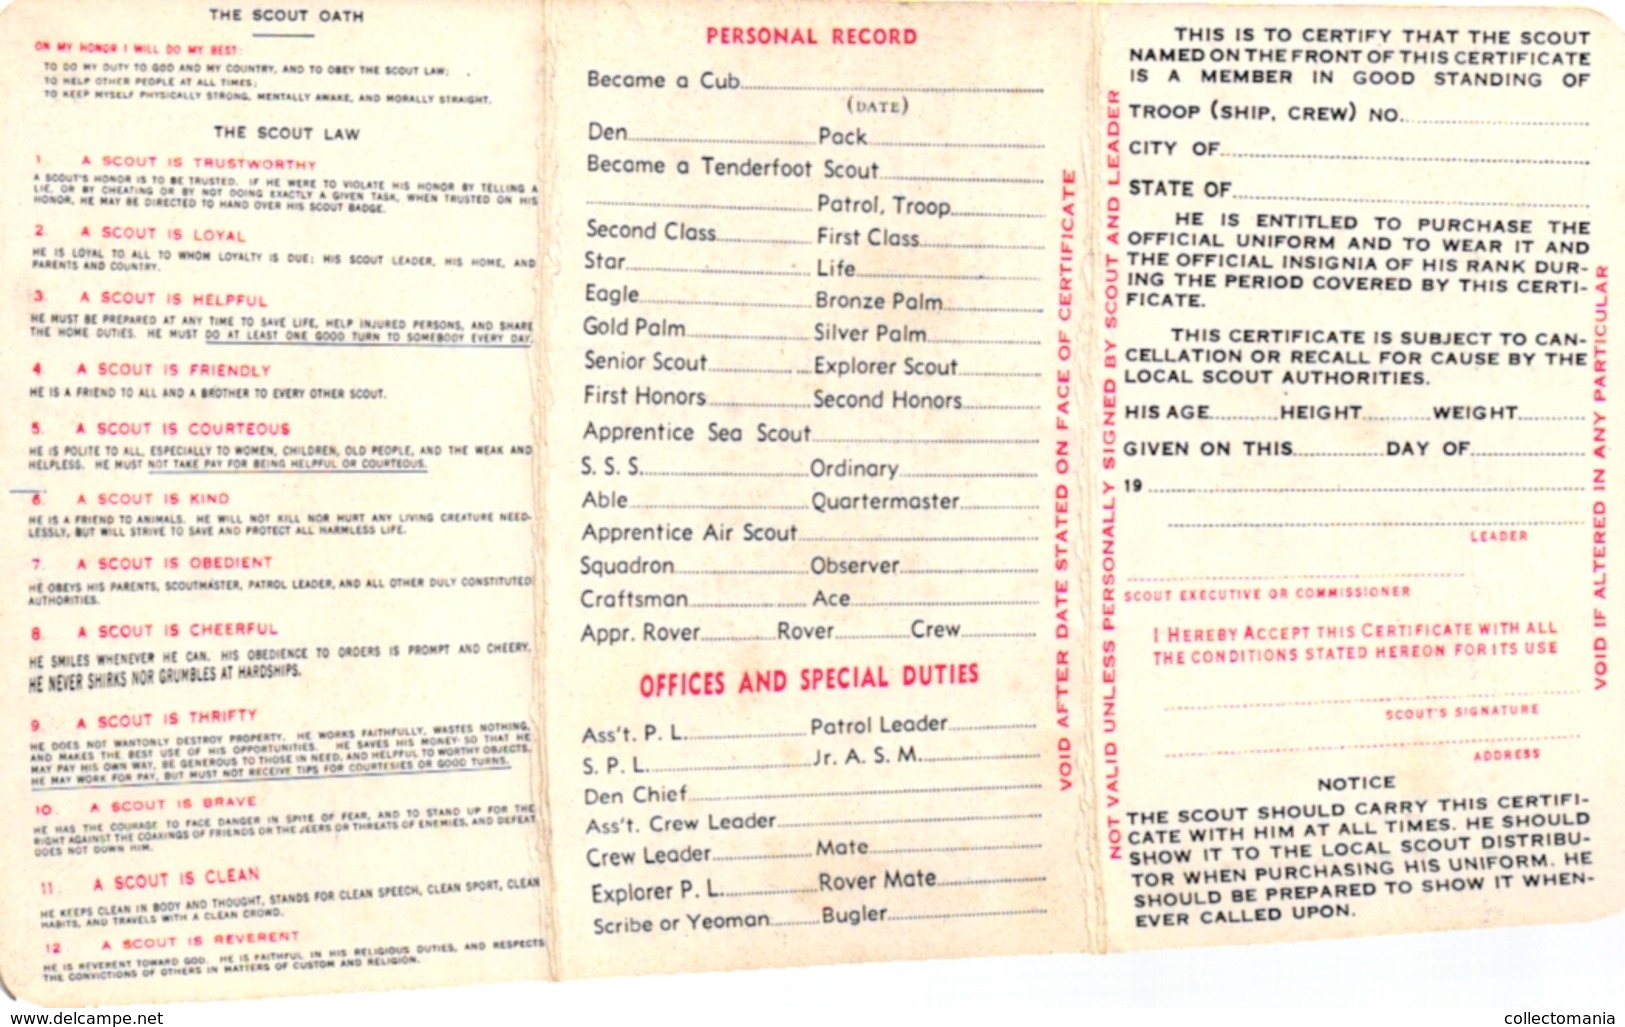 THE SCOUT OATH
ON MY HONOR I WILL DO MY BEST:
TO DO MY DUTY TO GOD AND MY COUNTRY, AND TO OBEY THE SCOUT LAW;
TO HELP OTHER PEOPLE AT ALL TIMES;
TO KEEP MYSELF PHYSICALLY STRONG, MENTALLY AWAKE, AND MORALLY STRAIGHT.
THE SCOUT LAW
1. A SCOUT IS TRUSTWORTHY
A SCOUT'S HONOR IS TO BE TRUSTED. IF HE WERE TO VIOLATE HIS HONOR BY TELLING A
LIE, OR BY CHEATING OR BY NOT DOING EXACTLY A GIVEN TASK, WHEN TRUSTED ON HIS
HONOR, HE MAY BE DIRECTED TO HAND OVER HIS SCOUT BADGE.
2. A SCOUT IS LOYAL
HE IS LOYAL TO ALL TO WHOM LOYALTY IS DUE; HIS SCOUT LEADER, HIS HOME, AND
PARENTS AND COUNTRY.
3. A SCOUT IS HELPFUL
HE MUST BE PREPARED AT ANY TIME TO SAVE LIFE, HELP INJURED PERSONS, AND SHARE
THE HOME DUTIES. HE MUST DO AT LEAST ONE GOOD TURN TO SOMEBODY EVERY DAY.
4. A SCOUT IS FRIENDLY
HE IS A FRIEND TO ALL AND A BROTHER TO EVERY OTHER SCOUT.
5. A SCOUT IS COURTEOUS
HE IS POLITE TO ALL, ESPECIALLY TO WOMEN, CHILDREN, OLD PEOPLE, AND THE WEAK AND
HELPLESS. HE MUST NOT TAKE PAY FOR BEING HELPFUL OR COURTEOUS.
6. A SCOUT IS KIND
HE IS A FRIEND TO ANIMALS. HE WILL NOT KILL NOR HURT ANY LIVING CREATURE NEED-
LESSLY, BUT WILL STRIVE TO SAVE AND PROTECT ALL HARMLESS LIFE.
7. A SCOUT IS OBEDIENT
HE OBEYS HIS PARENTS, SCOUTMASTER, PATROL LEADER, AND ALL OTHER DULY CONSTITUTED
AUTHORITIES.
8. A SCOUT IS CHEERFUL
HE SMILES WHENEVER HE CAN. HIS OBEDIENCE TO ORDERS IS PROMPT AND CHEERY.
HE NEVER SHIRKS NOR GRUMBLES AT HARDSHIPS.
9. A SCOUT IS THRIFTY
HE DOES NOT WANTONLY DESTROY PROPERTY. HE WORKS FAITHFULLY, WASTES NOTHING,
AND MAKES THE BEST USE OF HIS OPPORTUNITIES. HE SAVES HIS MONEY SO THAT HE
MAY PAY HIS OWN WAY, BE GENEROUS TO THOSE IN NEED, AND HELPFUL TO WORTHY OBJECTS.
HE MAY WORK FOR PAY, BUT MUST NOT RECEIVE TIPS FOR COURTESIES OR GOOD TURNS.
10. A SCOUT IS BRAVE
HE HAS THE COURAGE TO FACE DANGER IN SPITE OF FEAR, AND TO STAND UP FOR THE
RIGHT AGAINST THE COAXINGS OF FRIENDS OR THE JEERS OR THREATS OF ENEMIES, AND DEFEAT
DOES NOT DOWN HIM.
11. A SCOUT IS CLEAN
HE KEEPS CLEAN IN BODY AND THOUGHT, STANDS FOR CLEAN SPEECH, CLEAN SPORT, CLEAN
HABITS, AND TRAVELS WITH A CLEAN CROWD.
12 A SCOUT IS REVERENT
HE IS REVERENT TOWARD GOD. HE IS FAITHFUL IN HIS RELIGIOUS DUTIES, AND RESPECTS
THE CONVICTIONS OF OTHERS IN MATTERS OF CUSTOM AND RELIGION.
PERSONAL RECORD
Became a Cub
(DATE)
Den Pack
Became a Tenderfoot Scout
Patrol, Troop
Second Class First Class
Star Life
Eagle Bronze Palm
Gold Palm Silver Palm
Senior Scout Explorer Scout
First Honors Second Honors
Apprentice Sea Scout
S. S. S. Ordinary
Able Quartermaster
Apprentice Air Scout
Squadron Observer
Craftsman Ace
Appr. Rover Rover Crew
OFFICES AND SPECIAL DUTIES
Ass't. P. L. Patrol Leader
S. P. L. Jr. A. S. M.
Den Chief
Ass't. Crew Leader
Crew Leader Mate
Explorer P. L. Rover Mate
Scribe or Yeoman Bugler
VOID AFTER DATE STATED ON FACE OF CERTIFICATE
NOT VALID UNLESS PERSONALLY SIGNED BY SCOUT AND LEADER
THIS IS TO CERTIFY THAT THE SCOUT
NAMED ON THE FRONT OF THIS CERTIFICATE
IS A MEMBER IN GOOD STANDING OF
TROOP (SHIP, CREW) NO.
CITY OF
STATE OF
HE IS ENTITLED TO PURCHASE THE
OFFICIAL UNIFORM AND TO WEAR IT AND
THE OFFICIAL INSIGNIA OF HIS RANK DUR-
ING THE PERIOD COVERED BY THIS CERTI-
FICATE.
THIS CERTIFICATE IS SUBJECT TO CAN-
CELLATION OR RECALL FOR CAUSE BY THE
LOCAL SCOUT AUTHORITIES.
HIS AGE HEIGHT WEIGHT
GIVEN ON THIS DAY OF
19
LEADER
SCOUT EXECUTIVE OR COMMISSIONER
I HEREBY ACCEPT THIS CERTIFICATE WITH ALL
THE CONDITIONS STATED HEREON FOR ITS USE
SCOUT'S SIGNATURE
ADDRESS
NOTICE
THE SCOUT SHOULD CARRY THIS CERTIFI-
CATE WITH HIM AT ALL TIMES. HE SHOULD
SHOW IT TO THE LOCAL SCOUT DISTRIBU-
TOR WHEN PURCHASING HIS UNIFORM. HE
SHOULD BE PREPARED TO SHOW IT WHEN-
EVER CALLED UPON.
VOID IF ALTERED IN ANY PARTICULAR
www.delcampe.net
collectomania